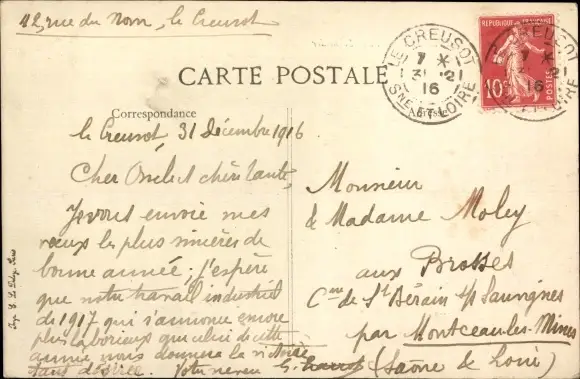 12, rue du Nom, le Creusot
CARTE POSTALE
Correspondance
LE CREUSOT
7 * 
31 - 12
16
SNE-ET-LOIRE
REPUBLIQUE FRANÇAISE
10c
POSTES
le Creusot, 31 Décembre 1916
Cher Oncle et chère tante,
Je vous envoie mes
vœux les plus sincères de
bonne année ; j'espère
que notre travail industriel
de 1917 qui s'annonce encore
plus laborieux que celui de cette
année nous donnera la victoire
Votre neveu
Monsieur
& Madame Moley
aux Brosses
Cne de St Bérain s/s Sanvignes
par Montceau-les-Mines
(Saône & Loire)